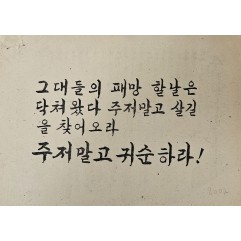 그대들의 패망 할날은
닥쳐왔다 주저말고 살길
을 찾어오라
주저말고 귀순하라!